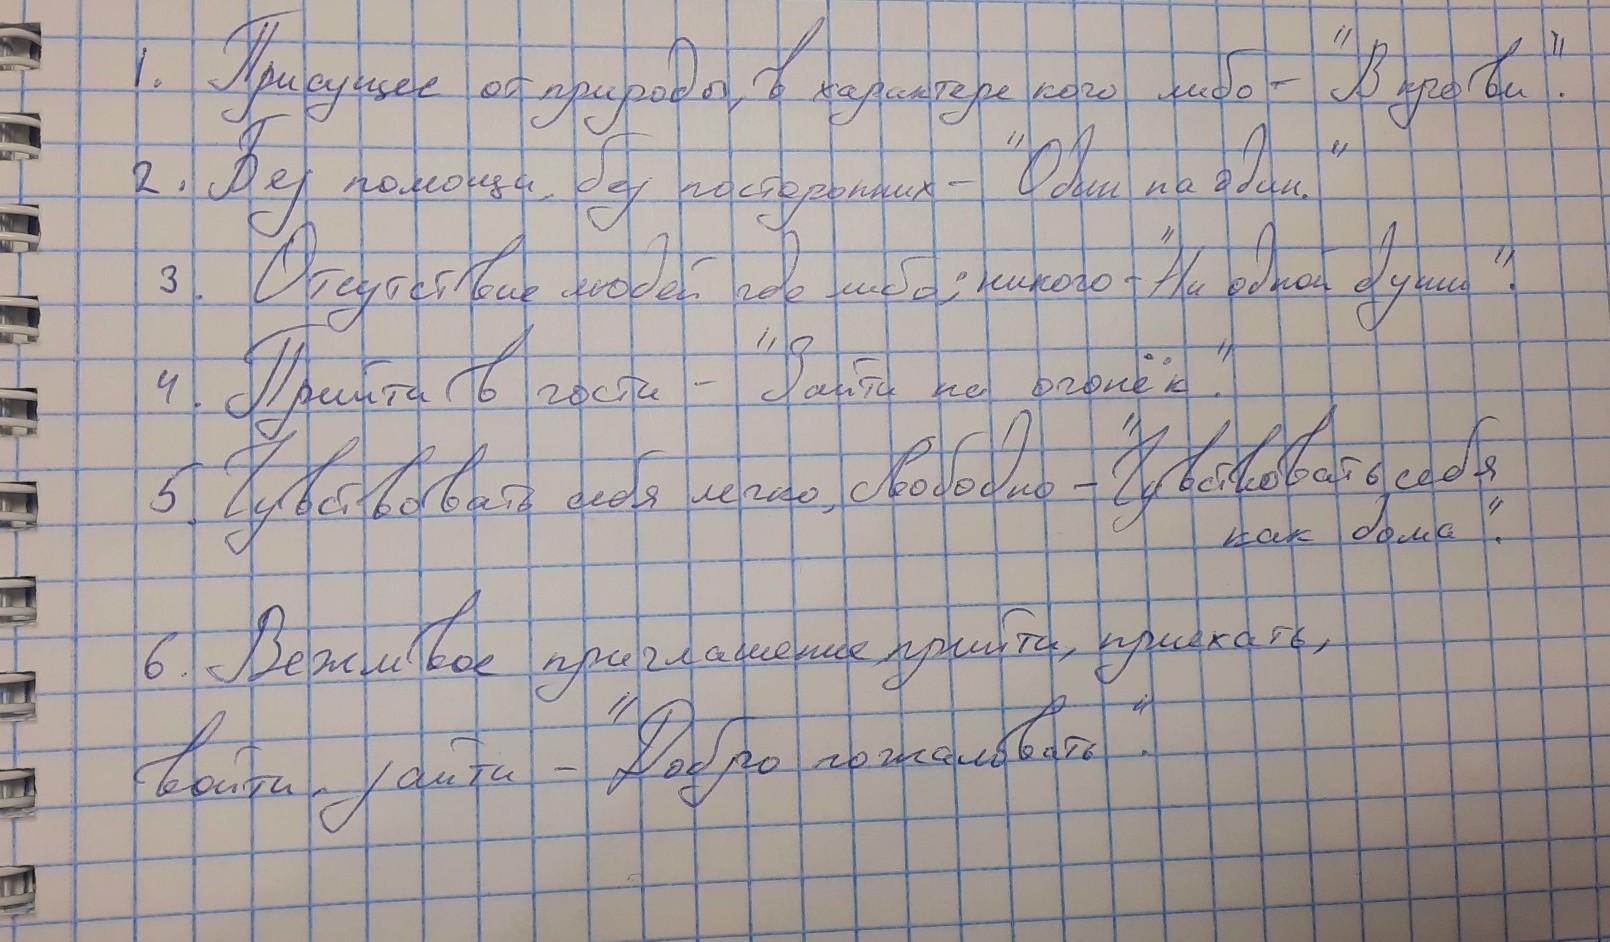 1. Присущее от природы, в характере кого либо - "В крови".
2. Без помощи, без посторонних - "Один на один."
3. Отсутствие людей где либо; никого - "Ни одной души".
4. Прийти в гости - "Зайти на огонёк".
5. Чувствовать себя легко, свободно - "Чувствовать себя
как дома".
6. Вежливое приглашение прийти, приехать,
войти, зайти - "Добро пожаловать".